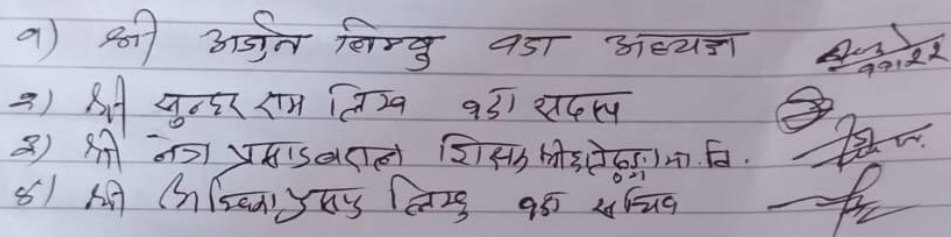 १) श्री अर्जुन लिम्बु वडा अध्यक्ष
२) श्री सुन्दर राम लिम्बु वडा सदस्य
३) श्री नेत्र प्रसाद शिक्षक मा. वि.
४) श्री लिम्बु वडा सचिव